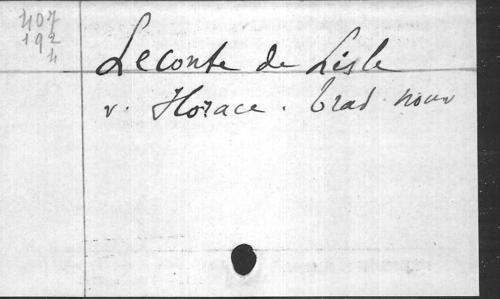 407
192
4
Leconte de Lisle
v. Horace. trad nouv